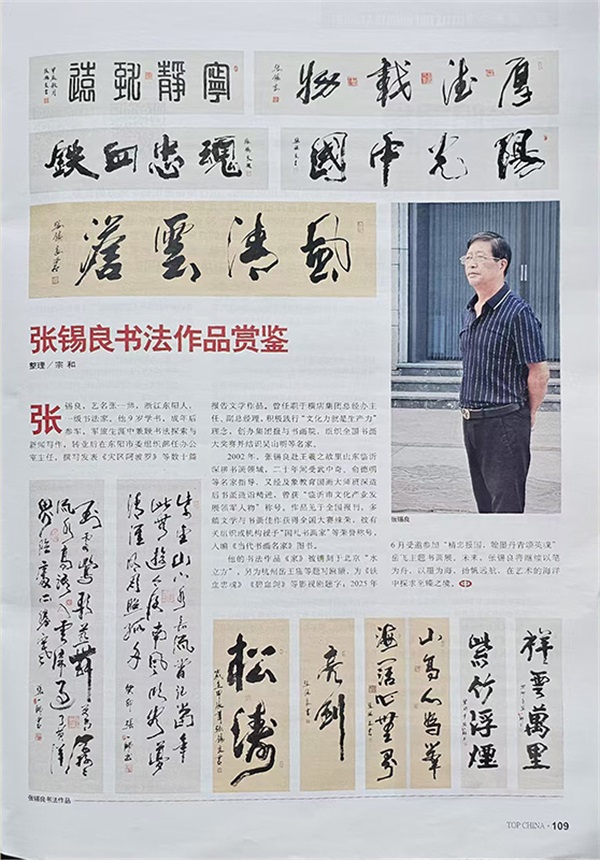 寧靜致遠
厚德載物
鐵血忠魂
陽光中國
清雲
张锡良书法作品赏鉴
整理／宗 和
张锡良，艺名张一狮，浙江东阳人，
一级书法家。他9岁学书，成年后
参军，军旅生涯中兼顾书法探索与
新闻写作，转业后在东阳市委组织部任办公
室主任，撰写发表《灾区阿波罗》等数十篇
报告文学作品。曾任职于横店集团总经办主
任、副总经理，积极践行“文化力就是生产力”
理念，创办集团报与书画院，组织全国书画
大奖赛并结识吴山明等名家。
2002年，张锡良赴王羲之故里山东临沂
深耕书画领域，二十年间受武中奇、俞德明
等名家指导，又经及象教育国画大师班深造
后书画造诣精进，曾获“临沂市文化产业发
展领军人物”称号。作品见于全国报刊，多
篇文学与书画佳作获得全国大赛殊荣，被有
关组织或机构授予“国礼书画家”等荣誉称号，
入编《当代书画名家》图书。
他的书法作品《家》被镌刻于北京“水
立方”，另为杭州岳王庙等题写匾额，为《铁
血忠魂》《碧血剑》等影视剧题字；2025年
张锡良
6月受邀参加“精忠报国、翰墨丹青颂英魂”
岳飞主题书画展。未来，张锡良将继续以笔
为舟，以墨为海，扬帆远航，在艺术的海洋
中探求至臻之境。
松濤
亮劍
海闊心無界
山高人為峰
紫竹浮煙
祥雲萬里
张锡良书法作品
TOP CHINA · 109